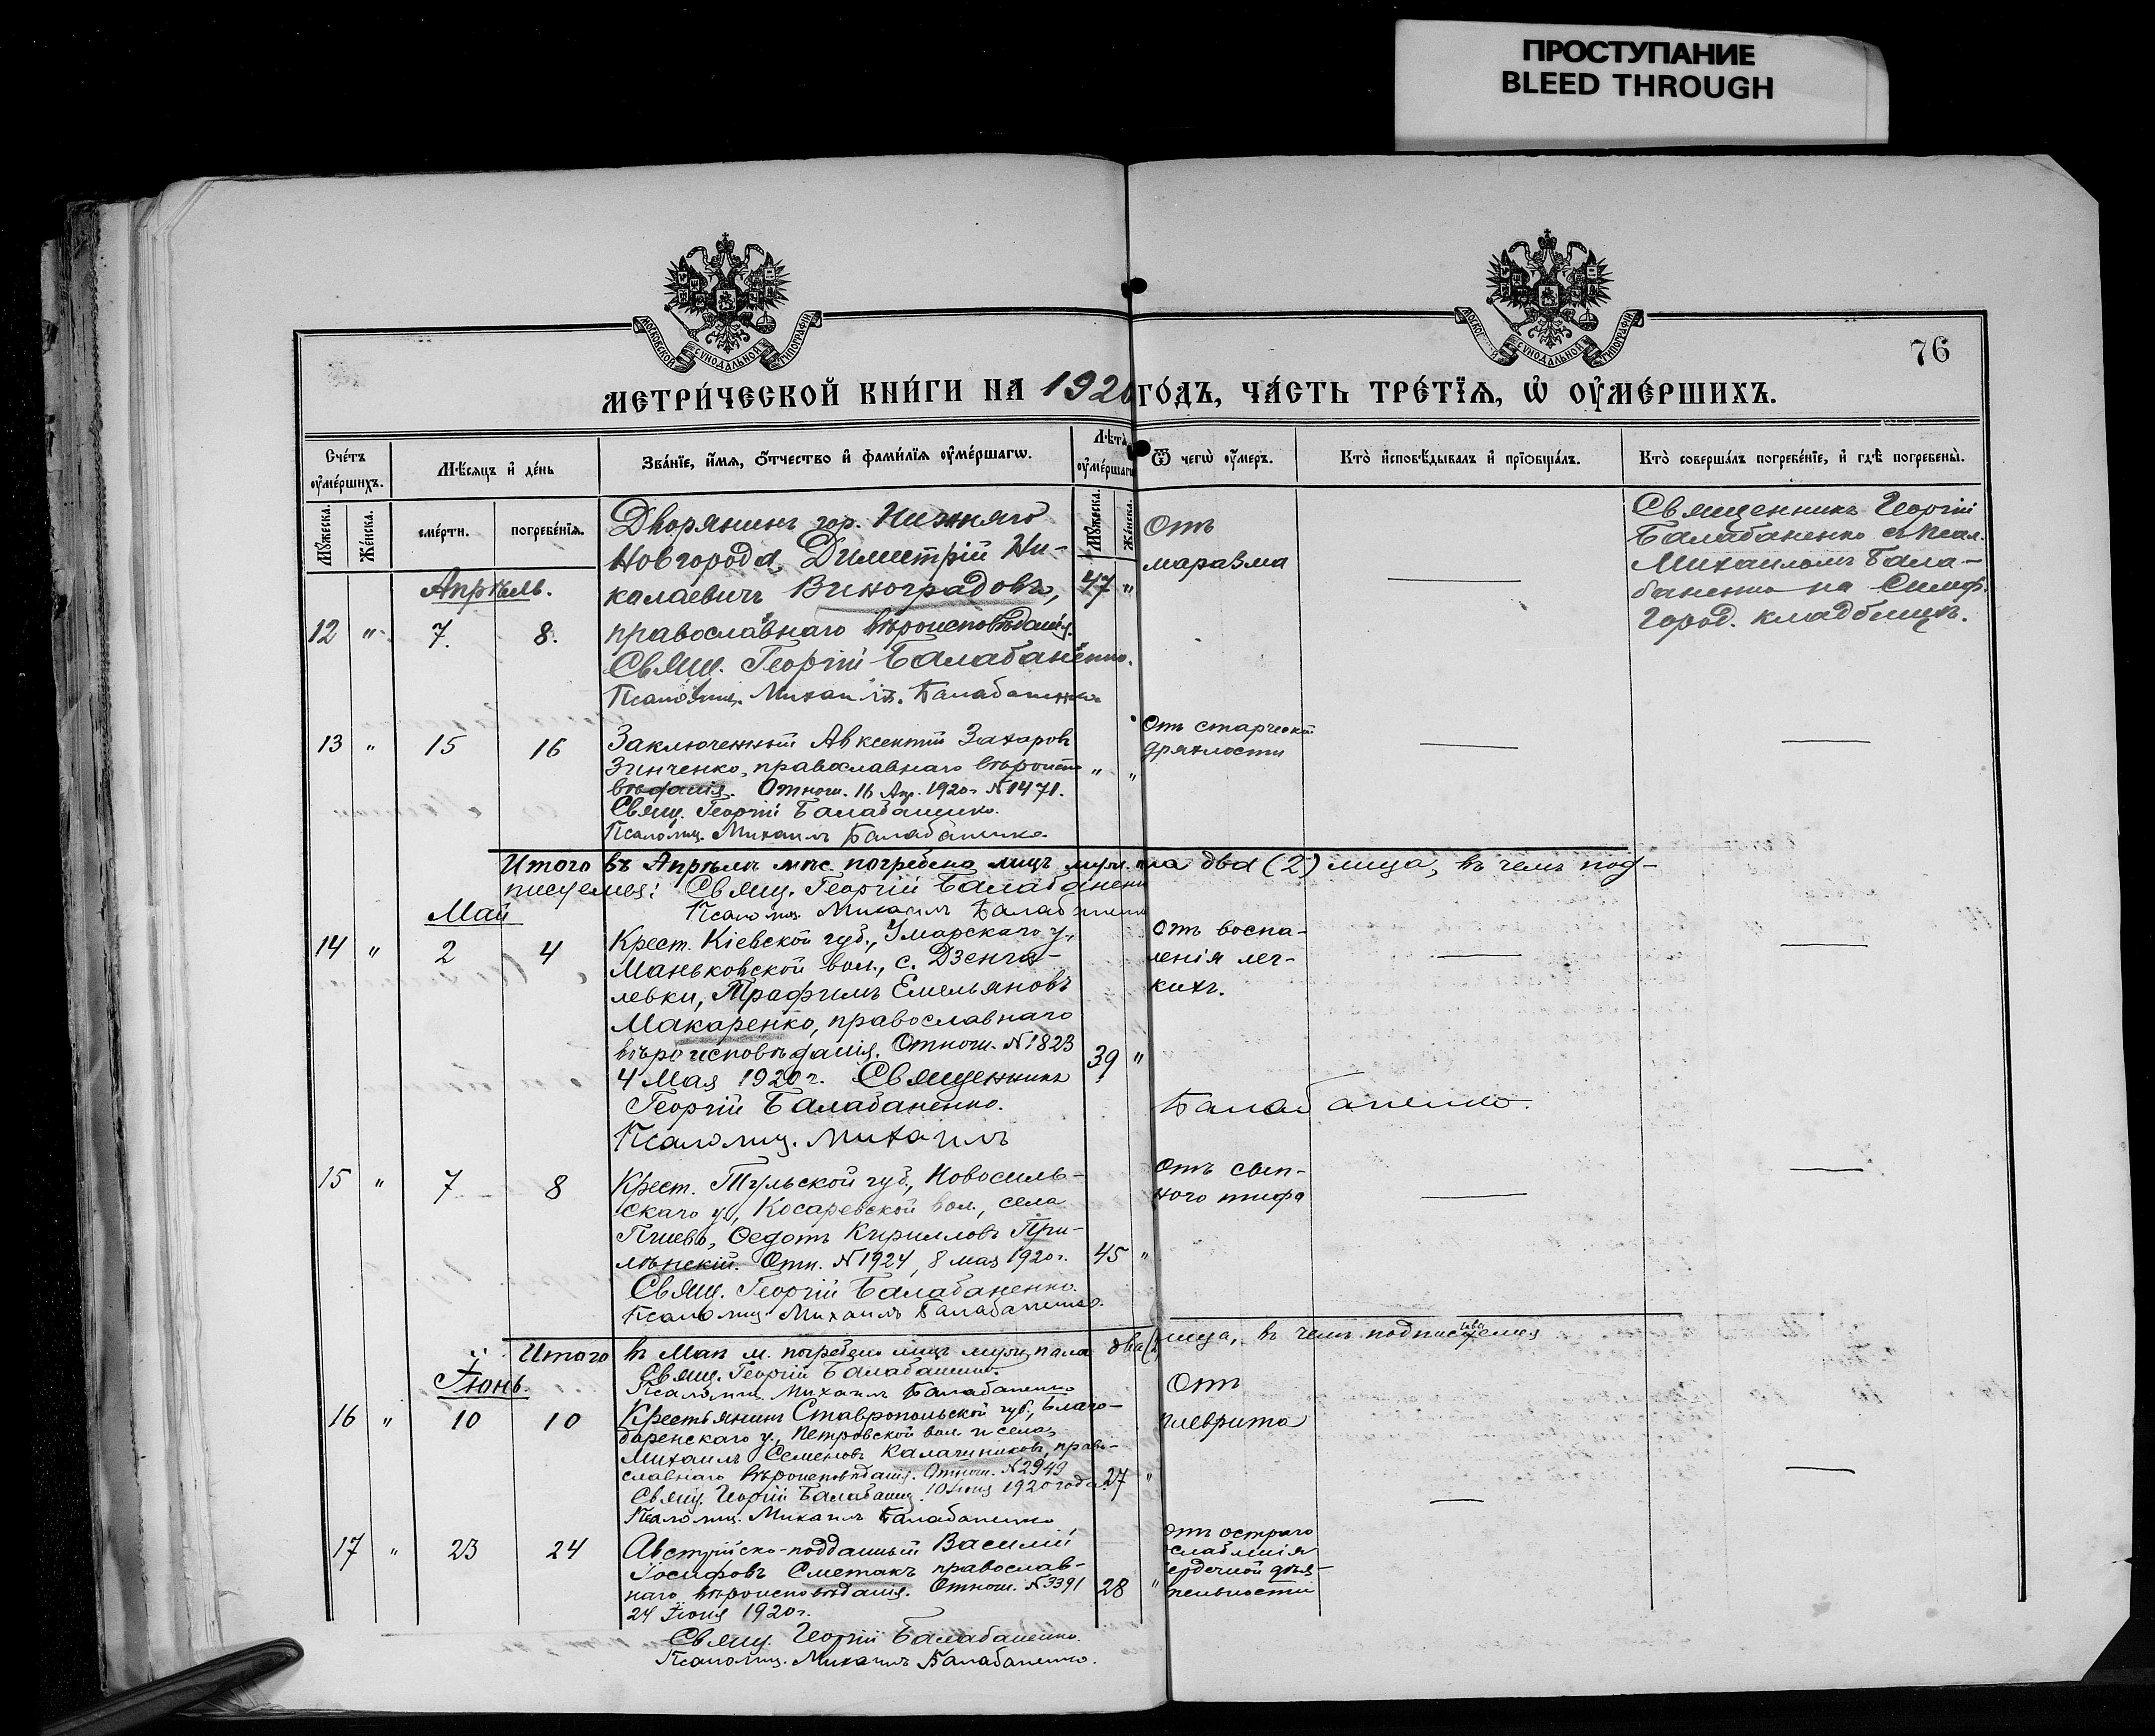 ПРОСТУПАНИЕ
BLEED THROUGH
МОСКОВСКОЙ СУНОДАЛЬНОЙ ТИПОГРАФІИ
МОСКОВСКОЙ СУНОДАЛЬНОЙ ТИПОГРАФІИ
76
МЕТРИ́ЧЕСКОЙ КНИ́ГИ НА 1920 ГО́ДЪ, ЧА́СТЬ ТРЕ́ТЇѦ, Ѡ҆ ОУ҆МЕ́РШИХЪ.
Сче́тъ оу҆ме́ршихъ.
Мѣ́сѧцъ и҆ де́нь
Зва́нїе, и҆́мѧ, ѻ҆́тчество и҆ фами́лїѧ оу҆ме́ршагѡ.
Лѣ̀та оу҆ме́ршагѡ
Ѿ чегѡ̀ оу҆́меръ.
Кто̀ и҆сповѣ́дывалъ и҆ прїѡбща́лъ.
Кто̀ соверша́лъ погребе́нїе, и҆ гдѣ̀ погребены̀.
Му́жеска.
Же́нска.
сме́рти.
погребе́нїѧ.
Му́жеска.
Же́нска.
Апрѣль.
12 " 7. 8.
Дворянинъ гор. Нижняго
Новгорода, Димитрій Ни-
колаевичъ Виноградовъ,
православнаго вѣроисповѣданія.
Свящ. Георгій Балабаненко.
Псаломщ. Михаилъ Балабаненко
47 "
Отъ
маразма
Священникъ Георгій
Балабаненко съ псал.
Михаиломъ Бала-
баненко на Симф.
Город. кладбищѣ.
13 " 15 16
Заключенный Авксентій Захаровъ
Зинченко, православнаго вѣроиспо
вѣданія. Отнош. 16 Апр. 1920 г. № 1471.
Свящ. Георгій Балабаненко.
Псаломщ. Михаилъ Балабаненко.
" "
Отъ старческой
дряхлости
Итого въ Апрѣлѣ мѣс. погребено лицъ муж. пола два (2) лица, въ чемъ под-
писуемся: Свящ. Георгій Балабаненко
Псаломщ. Михаилъ Балабаненко
Май
14 " 2 4
Крест. Кіевской губ., Уманскаго у.,
Маньковской вол., с. Дзенге-
левки, Трафимъ Емельяновъ
Макаренко, православнаго
вѣроисповѣданія. Отнош. № 1823
4 Мая 1920 г. Священникъ
Георгій Балабаненко.
Псаломщ. Михаилъ Балабаненко.
39 "
Отъ воспа-
ленія лег-
кихъ.
15 " 7 8
Крест. Тульской губ., Новосиль-
скаго у., Косаревской вол., села
Пшево, Ѳедотъ Кирилловъ При-
лѣпскій. Отн. № 1924, 8 мая 1920 г.
Свящ. Георгій Балабаненко.
Псаломщ. Михаилъ Балабаненко.
45 "
Отъ сып-
ного тифа
Итого въ Маѣ м. погребено лицъ муж. пола два (2) лица, въ чемъ подписуемся
Свящ. Георгій Балабаненко.
Псаломщ. Михаилъ Балабаненко
Іюнь.
16 " 10 10
Крестьянинъ Ставропольской губ., Благо-
даренскаго у., Петровской вол. и села,
Михаилъ Семеновъ Калашниковъ, право-
славнаго вѣроисповѣданія. Отнош. № 2949
Свящ. Георгій Балабаненко 10 Іюня 1920 года.
Псаломщ. Михаилъ Балабаненко
27 "
Отъ
плеврита
17 " 23 24
Австрійско-подданный Василій
Іосифовъ Сметакъ православ-
наго вѣроисповѣданія. Отнош. № 3391
24 Іюня 1920 г.
Свящ. Георгій Балабаненко.
Псаломщ. Михаилъ Балабаненко.
28 "
отъ остраго
ослабленія
сердечной дѣя-
тельности